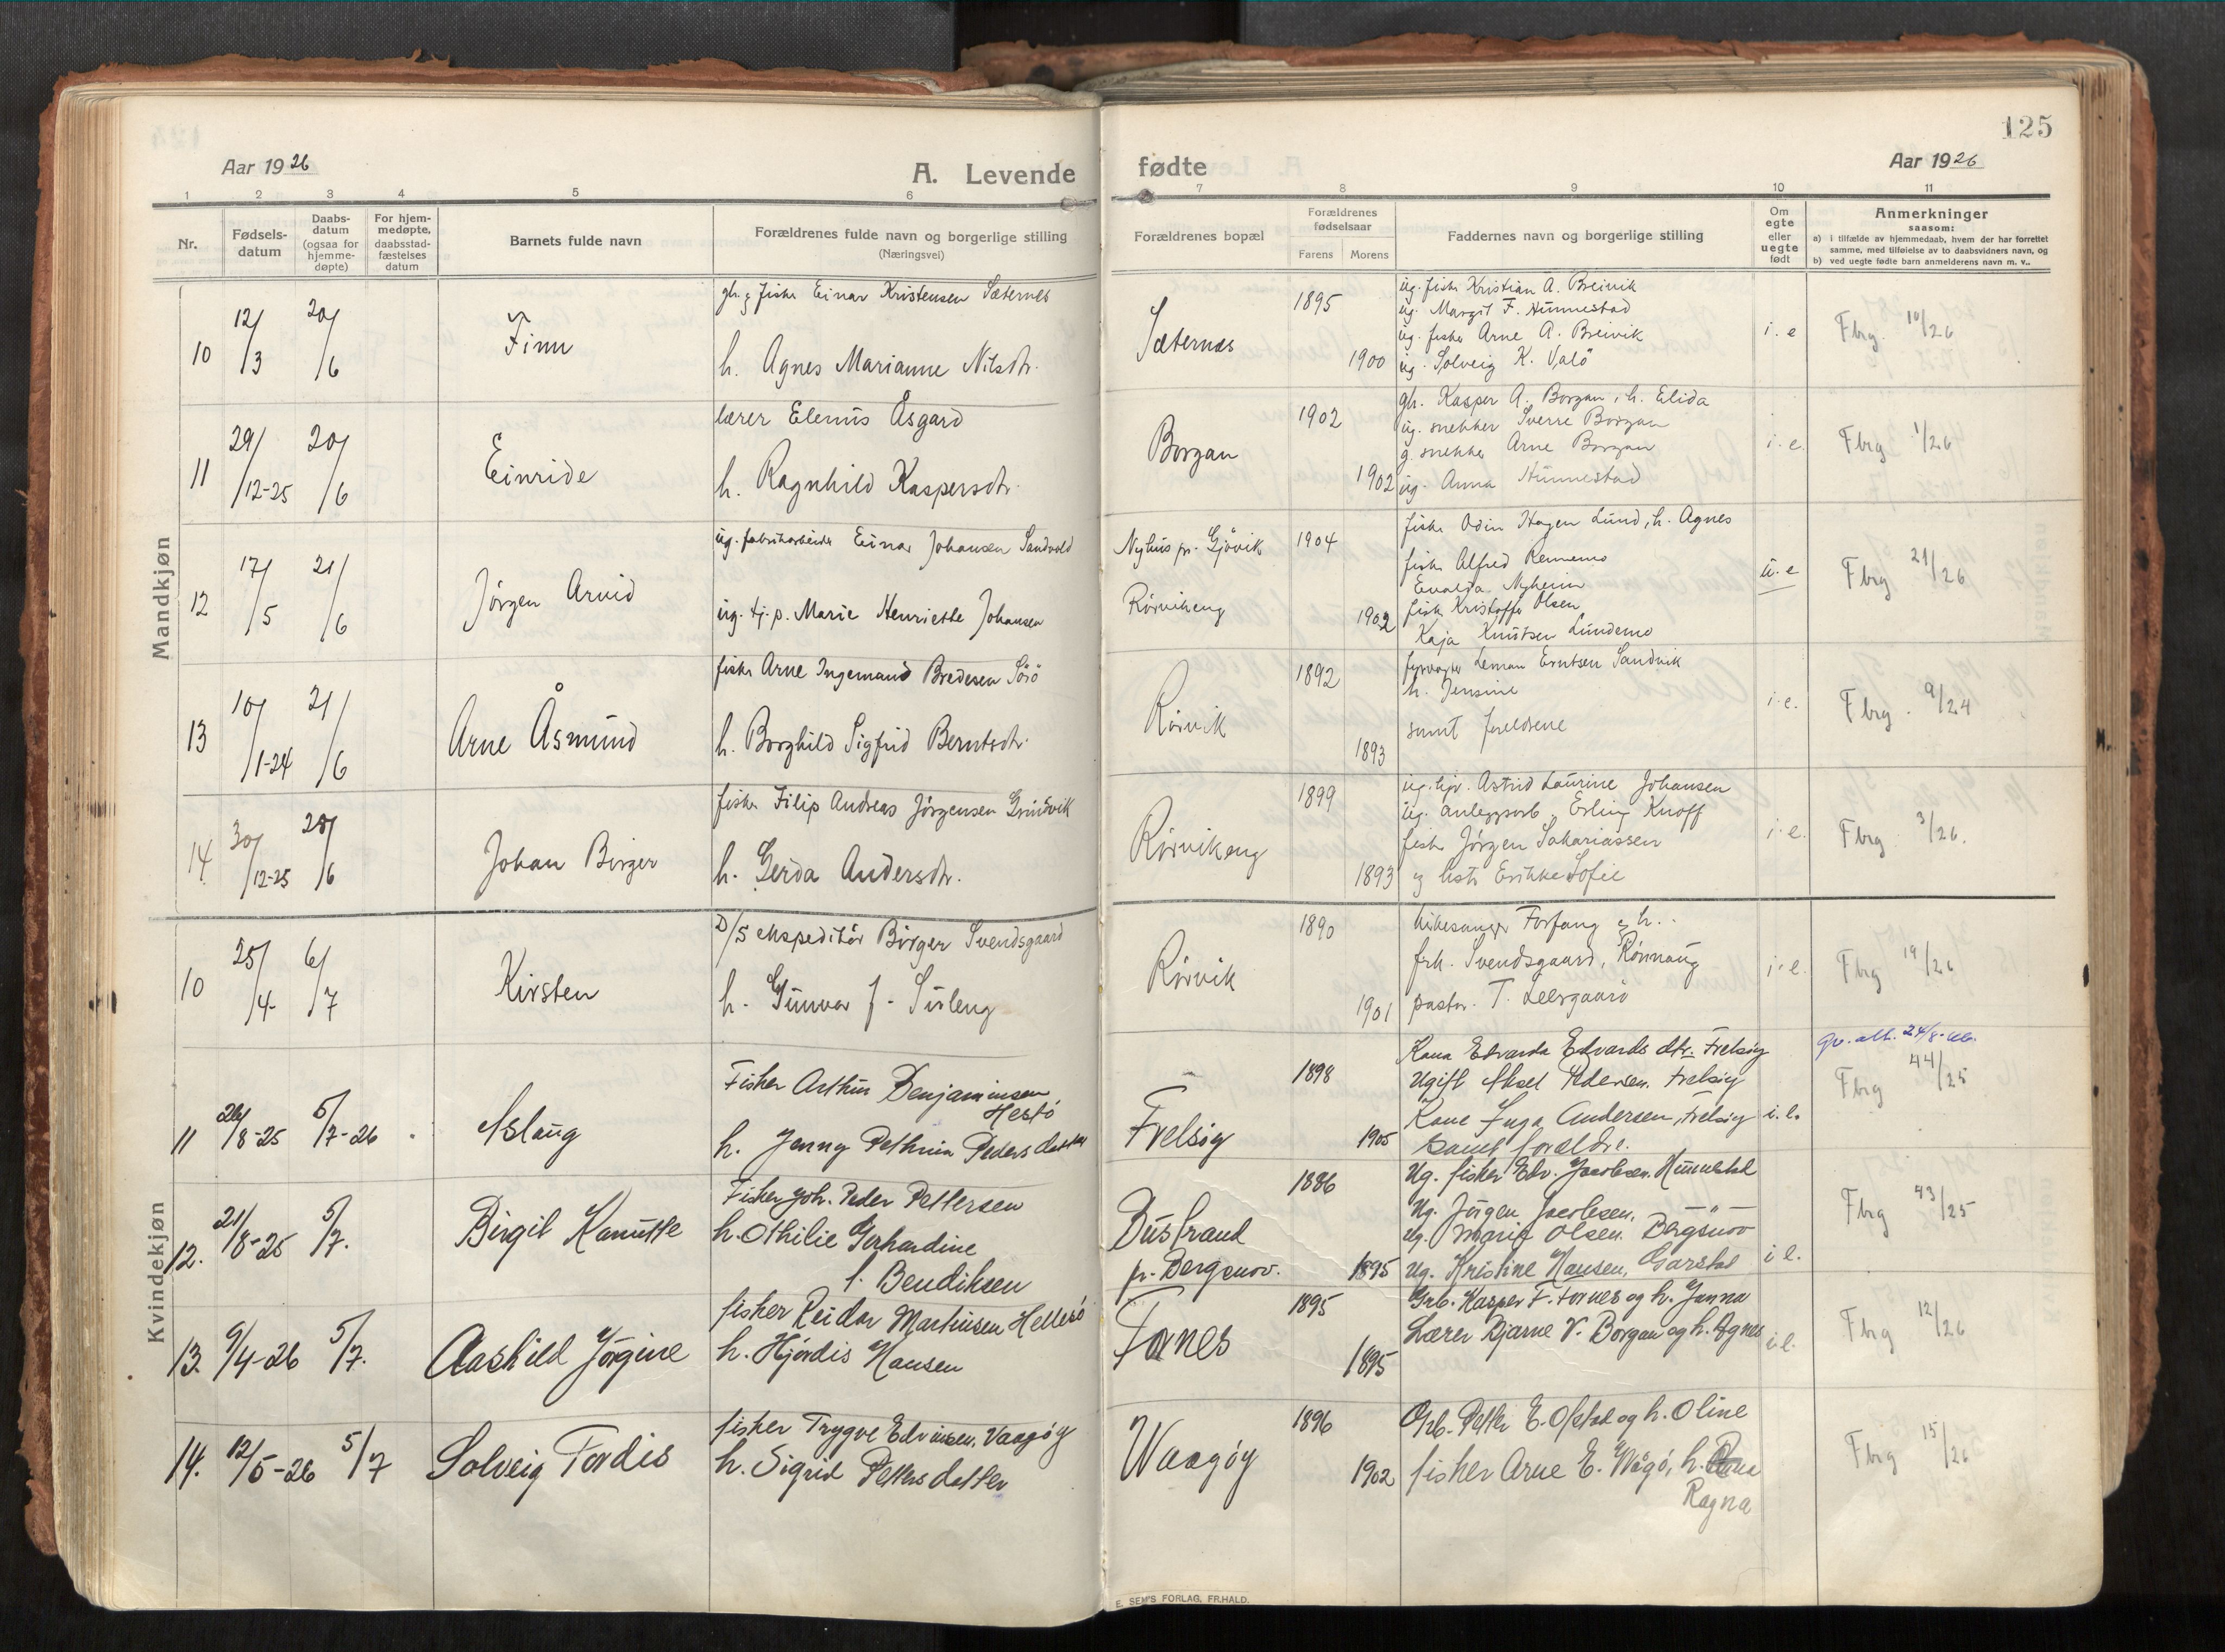 125
Aar 1926
A. Levende
fødte
Aar 1926
1 2 3 4 5 6 7 8 9 10 11
Nr.
Fødsels-
datum
Daabs-
datum
(ogsaa for
hjemme-
døpte)
For hjem-
medøpte,
daabsstad-
fæstelses
datum
Barnets fulde navn
Forældrenes fulde navn og borgerlige stilling
(Næringsvei)
Forældrenes bopæl
Forældrenes
fødselsaar
Farens Morens
Faddernes navn og borgerlige stilling
Om
egte
eller
uegte
født
Anmerkninger
saasom:
a) i tilfælde av hjemmedaab, hvem der har forrettet
samme, med tilføielse av to daabsvidners navn, og
b) ved uegte fødte barn anmelderens navn m. v..
Mandkjøn
10 12/3 20/6 Finn
gb. & fisker Einar Kristensen Sæternes
h. Agnes Marianne Nilsdtr.
Sæternes 1895 1900
ug. fisker Kristian A. Breivik
ug. Margit F. Hunnestad
ug. fisker Arne A. Breivik
ug. Solveig K. Valö
i. e Fbrg. 10/26
11 29/12-25 20/6 Einride
lærer Elenus Åsgard
h. Ragnhild Kaspersdtr.
Borgan 1902 1902
gb. Kasper A. Borgan, h. Elida
ug. snekker Sverre Borgan
g. snekker Arne Borgan
ug. Anna Hunnestad
i. e. Fbrg 1/26
12 17/5 21/6 Jörgen Arvid
ug. fabrikarbeider Einar Johansen Sandvold
ug. tj.p. Marie Henriette Johansen
Nyhus pr. Gjövik 1904
Rörvikeng 1902
fisker Odin Hagen Lund, h. Agnes
fisker Alfred Rennemo
Evalda Nyheim
fisker Kristoffer Olsen
Kaja Knutsen Lundemo
u. e Fbrg 21/26
13 10/1-24 21/6 Arne Åsmund
fisker Arne Ingemand Bredesen Sörö
h. Borghild Sigfrid Berntsdtr.
Rörvik 1892 1893
fyrvogter Leman Erntsen Sandvik
h. Jensine
samt foreldrene
i. e. Fbrg. 9/24
14 30/12-25 28/6 Johan Birger
fisker Filip Andreas Jörgensen Grindvik
h. Gerda Andersdtr.
Rörvikeng 1899 1893
ug. tjp. Astrid Laurine Johansen
ug. anleggsarb. Erling Knoff
fisker Jörgen Sakariassen
og hstr Erikke Sofie
i. e. Fbrg 3/26.
Kvindekjøn
10 25/4 6/7 Kirsten
D/S ekspeditör Birger Svendsgaard
h. Gunvor f. Sirleng
Rörvik 1890 1901
kirkesanger Forfang og h.
frk. Svendsgaard, Rönnaug
pastor T. Leergaard
i. e. Fbrg 19/26
11 26/8-25 5/7-26 Aslaug
Fisker Arthur Benjaminsen
Hestö
h. Jenny Pethrea Pedersdatter
Frelsøy 1898 1905
Kona Edvarda Edvards dtr. Frelsøy
Ugift Aksel Pedersen. Frelsøy
Kone Inga Andersen, Frelsøy
samt forældre.
i. e. 24/8-
Fbrg 44/25
12. 21/8-25 5/7. Birgit Kanutte
Fisker Joh. Peder Pettersen
h. Othilie Gerhardine
f. Bendiksen
Bustrand
pr. Bergsnov. 1886 1895
Ug. fisker Edv. Jacobsen. Hunnestad
Ug. Jörgen Jacobsen. — " —
ug. Marie Olsen. Bergsnov
Ug. Kristine Hansen, Garstad
i e. Fbrg 43/25
13. 9/4-26 5/7. Aashild Jörgine
fisker Reidar Martinsen Hellesö
h. Hjördis Hansen
Fornes 1895 1895
Grb. Kasper F. Fornes og h. Janna
Lærer Bjarne V. Borgan og h. Agnes
i e. Fbrg 12/26
14. 12/5-26 5/7 Solveig Tordis
fisker Trygve Edvinsen. Vaagøy
h. Sigrid Pettersdatter
Waagøy 1896 1902
Grb. Petter E. Ofstad og h. Oline
fisker Arne E. Wågö, h.
Ragna
Fbrg 15/26
E. SEM'S FORLAG, FR.HALD.